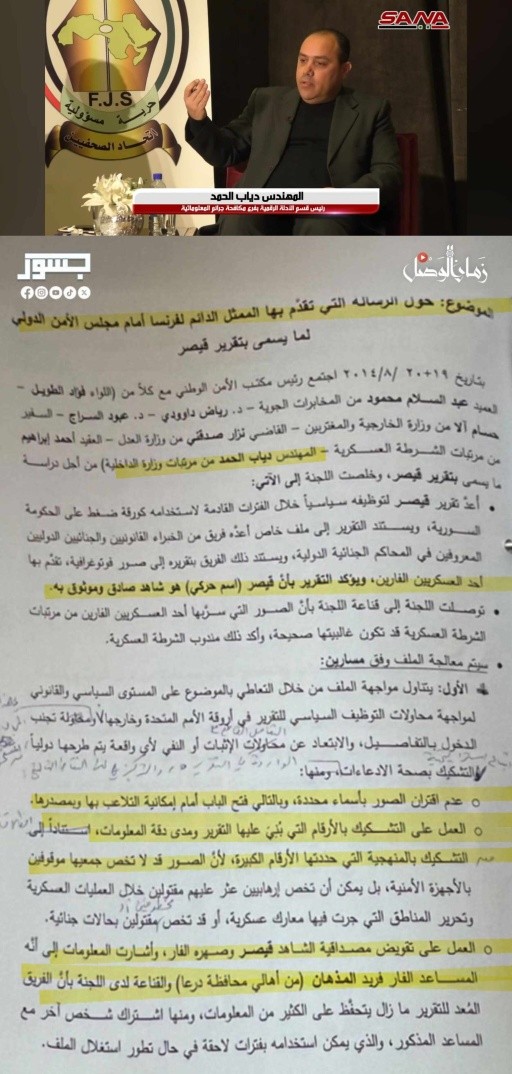 SANA
F.J.S
حرية مسؤولية
اتحاد الصحفيين
المهندس دياب الحمد
رئيس قسم الأدلة الرقمية بفرع مكافحة جرائم المعلوماتية
جسور
زمان الوصل
الموضوع: حول الرسالة التي تقدّم بها الممثل الدائم لفرنسا أمام مجلس الأمن الدولي
لما يسمى بتقرير قيصر
بتاريخ ١٩+٢٠١٤/٨/٢٠ اجتمع رئيس مكتب الأمن الوطني مع كلاً من (اللواء فؤاد الطويل –
العميد عبد السلام محمود من المخابرات الجوية – د. رياض داوودي – د. عبود السراج – السفير
حسام آلا من وزارة الخارجية والمغتربين – القاضي نزار صدقني من وزارة العدل – العقيد أحمد إبراهيم
من مرتبات الشرطة العسكرية – المهندس دياب الحمد من مرتبات وزارة الداخلية) من أجل دراسة
ما يسمى بتقرير قيصر، وخلصت اللجنة إلى الآتي:
• أُعدّ تقرير قيصر لتوظيفه سياسياً خلال الفترات القادمة لاستخدامه كورقة ضغط على الحكومة
السورية، ويستند التقرير إلى ملف خاص أعدّه فريق من الخبراء القانونيين والجنائيين الدوليين
المعروفين في المحاكم الجنائية الدولية، ويستند ذلك الفريق بتقريره إلى صور فوتوغرافية، تقدّم بها
أحد العسكريين الفارين، ويؤكد التقرير بأنّ قيصر (اسم حركي) هو شاهد صادق وموثوق به.
• توصلت اللجنة إلى قناعة اللجنة بأنّ الصور التي سرّبها أحد العسكريين الفارين من مرتبات
الشرطة العسكرية قد تكون غالبيتها صحيحة، وأكد ذلك مندوب الشرطة العسكرية.
• سيتم معالجة الملف وفق مسارين:
الأول: يتناول مواجهة الملف من خلال التعاطي بالموضوع على المستوى السياسي والقانوني
لمواجهة محاولات التوظيف السياسي للتقرير في أروقة الأمم المتحدة وخارجها ومحاولة تجنب
الدخول بالتفاصيل، والابتعاد عن محاولات الإثبات أو النفي لأي واقعة يتم طرحها دولياً
التشكيك بصحة الادعاءات، ومنها:
○ عدم اقتران الصور بأسماء محددة، وبالتالي فتح الباب أمام إمكانية التلاعب بها وبمصدرها.
○ العمل على التشكيك بالأرقام التي بُنيَ عليها التقرير ومدى دقة المعلومات، استناداً إلى
التشكيك بالمنهجية التي حددتها الأرقام الكبيرة، لأنّ الصور قد لا تخص جميعها موقوفين
بالأجهزة الأمنية، بل يمكن أن تخص إرهابيين عثر عليهم مقتولين خلال العمليات العسكرية
وتحرير المناطق التي جرت فيها معارك عسكرية، أو قد تخص مقتولين بحالات جنائية.
○ العمل على تقويض مصداقية الشاهد قيصر وصهره الفار، وأشارت المعلومات إلى أنّه
المساعد الفار فريد المذهان (من أهالي محافظة درعا) والقناعة لدى اللجنة بأنّ الفريق
المُعد للتقرير ما زال يتحفّظ على الكثير من المعلومات، ومنها اشتراك شخص آخر مع
المساعد المذكور، والذي يمكن استخدامه بفترات لاحقة في حال تطور استغلال الملف.